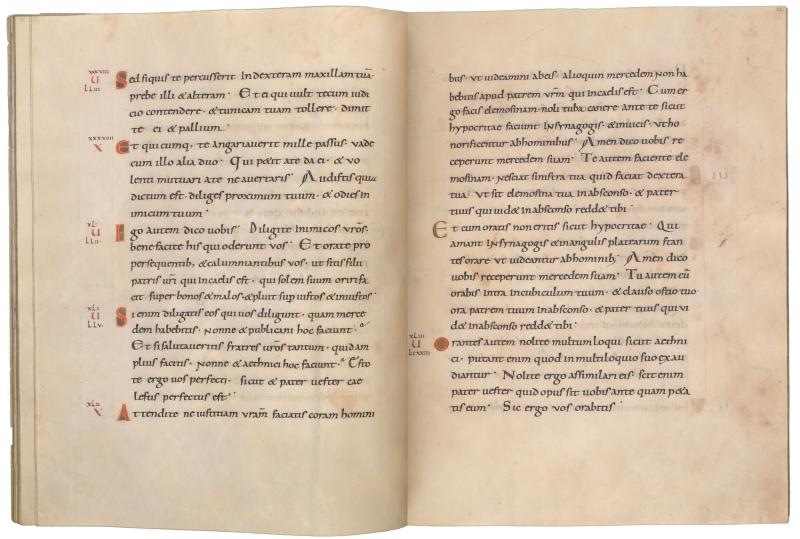 xxxviii
U
LLIII
Sed siquis te percusserit Indexteram maxillam tuā·
prebe illi & alteram· Et ei qui uult tecum iudi
cio contendere· & tunicam tuam tollere· dimit
te ei & pallium·
xxxviiii
X
Et qui cumq, te angariauerit mille passus· uade
cum illo alia duo· Qui petit ate da ei· & uo
lenti mutuari ate ne auertaris· Audistis quia
dictum est· diliges proximum tuum· & odies in
imicum tuum·
xL·
U
LIII
Ego autem dico uobis· Diligite inimicos vrōs·
bene facite his qui oderunt vos· Et orate pro
persequentib; & calumniantibus vos· ut sitis filii
patris uri qui incaelis est· qui solem suum oriri fa
cit super bonos & malos· & pluit sup iustos & iniustos·
xLi
U
LLV·
Si enim diligatis eos qui uos diligunt· quam merce
dem habebitis· Nonne & publicani hoc faciunt·
Et si salutaueritis fratres urōs tantum· quid am
plius facitis· Nonne & aethnici hoc faciunt· Esto
te ergo uos perfecti· sicut & pater uester cae
lestis perfectus est·
xLii
X
Attendite ne iustitiam vram faciatis coram homini
bus· ut uideamini abeis· alioquin mercedem Non ha
bebitis apud patrem vrm qui incaelis est· Cum er
go facis elemosinam· noli tuba canere ante te sicut
hypocritae faciunt Insynagogis· & inuicis· ut ho
norificentur abhominibus· Amen dico uobis re
ceperunt mercedem suam· Te autem faciente ele
mosinam· nesciat sinistra tua quid faciat dextera
tua· Ut sit elemosina tua inabsconso· & pater
tuus qui uid& inabsconso redd& tibi·
Et cum oratis non eritis sicut hypocritae· Qui
amant Insynagogis & inangulis platearum stan
tes orare ut uideantur abhominib; Amen dico
uobis receperunt mercedem suam· Tu autem cū
orabis intra incubiculum tuum· & clauso ostio tuo
ora patrem tuum inabsconso· & pater tuus qui vi
d& inabsconso redd& tibi·
xLiii
U
Orantes autem nolite multum loqui sicut aethni
ci· putant enim quod in multiloquio suo exau
diantur· Nolite ergo assimilari eis· scit enim
pater uester quid opus sit uobis ante quam p&a
tis eum· Sic ergo vos orabitis·